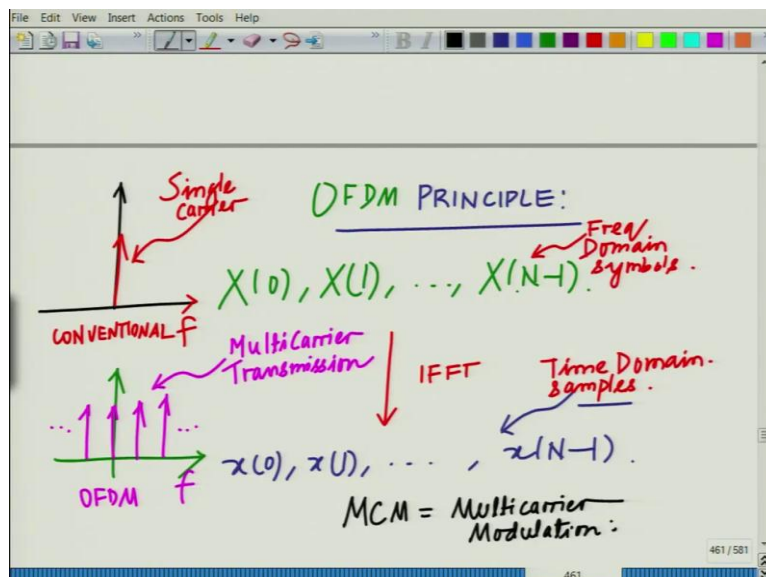 File Edit View Insert Actions Tools Help
B I
Single
Carrier
OFDM PRINCIPLE:
Freq
Domain
symbols.
X(0), X(1), ..., X(N-1).
CONVENTIONAL f
MultiCarrier
Transmission
IFFT
Time Domain.
samples.
... ...
OFDM f
x(0), x(1), ...., x(N-1).
MCM = Multicarrier
Modulation:
461 / 581
461